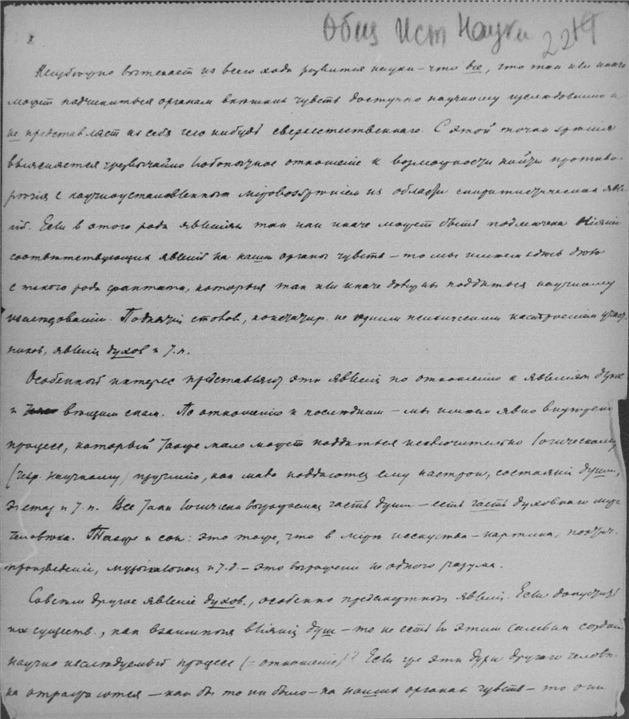 Общ Ист Науки
вытекает из всего хода развития науки – что все, что так или иначе
может подчиниться органам внешних чувств доступно научному исследованию и
не представляет из себя чего нибудь сверхестественного. С этой точки зрения
выясняется чрезвычайно любопытное отношение к возможности найти противо-
речия с научноустановленным мировоззрением из области спиритических явле-
ний. Если в этого рода явлениях так или иначе может быть подмечена
соответствующих явлений на наши органы чувств – то мы имеем здесь дело
с такого рода фактами, которые так или иначе должны поддаться научному
исследованию. столов, не одним психическим настроением
ников, явления духов и т.п.
Особенный интерес представляют эти явления по отношению к явлениям духов
и вещим снам. По отношению к последним – мы имеем явно внутренний
процесс, который также мало может поддаться исключительно логическому
(научному) как мало поддаются ему настроения, состояния души,
экстаз и т.п. Все такие часть души – есть часть духовного мира
человека. Также и сон: это тоже, что в мире искусства – картина,
произведений, музыкальных и т.д – это выражения не одного разума.
Совсем другое явление духов, особенно предсмертных явлений. Если допускать
их существ., как взаимных влияний душ – то не есть ли этим самым
научно исследуемый процесс (= отношение)? Если где эти духи другого челове-
ка отражаются – как бы то ни было – на наших органах чувств – то они